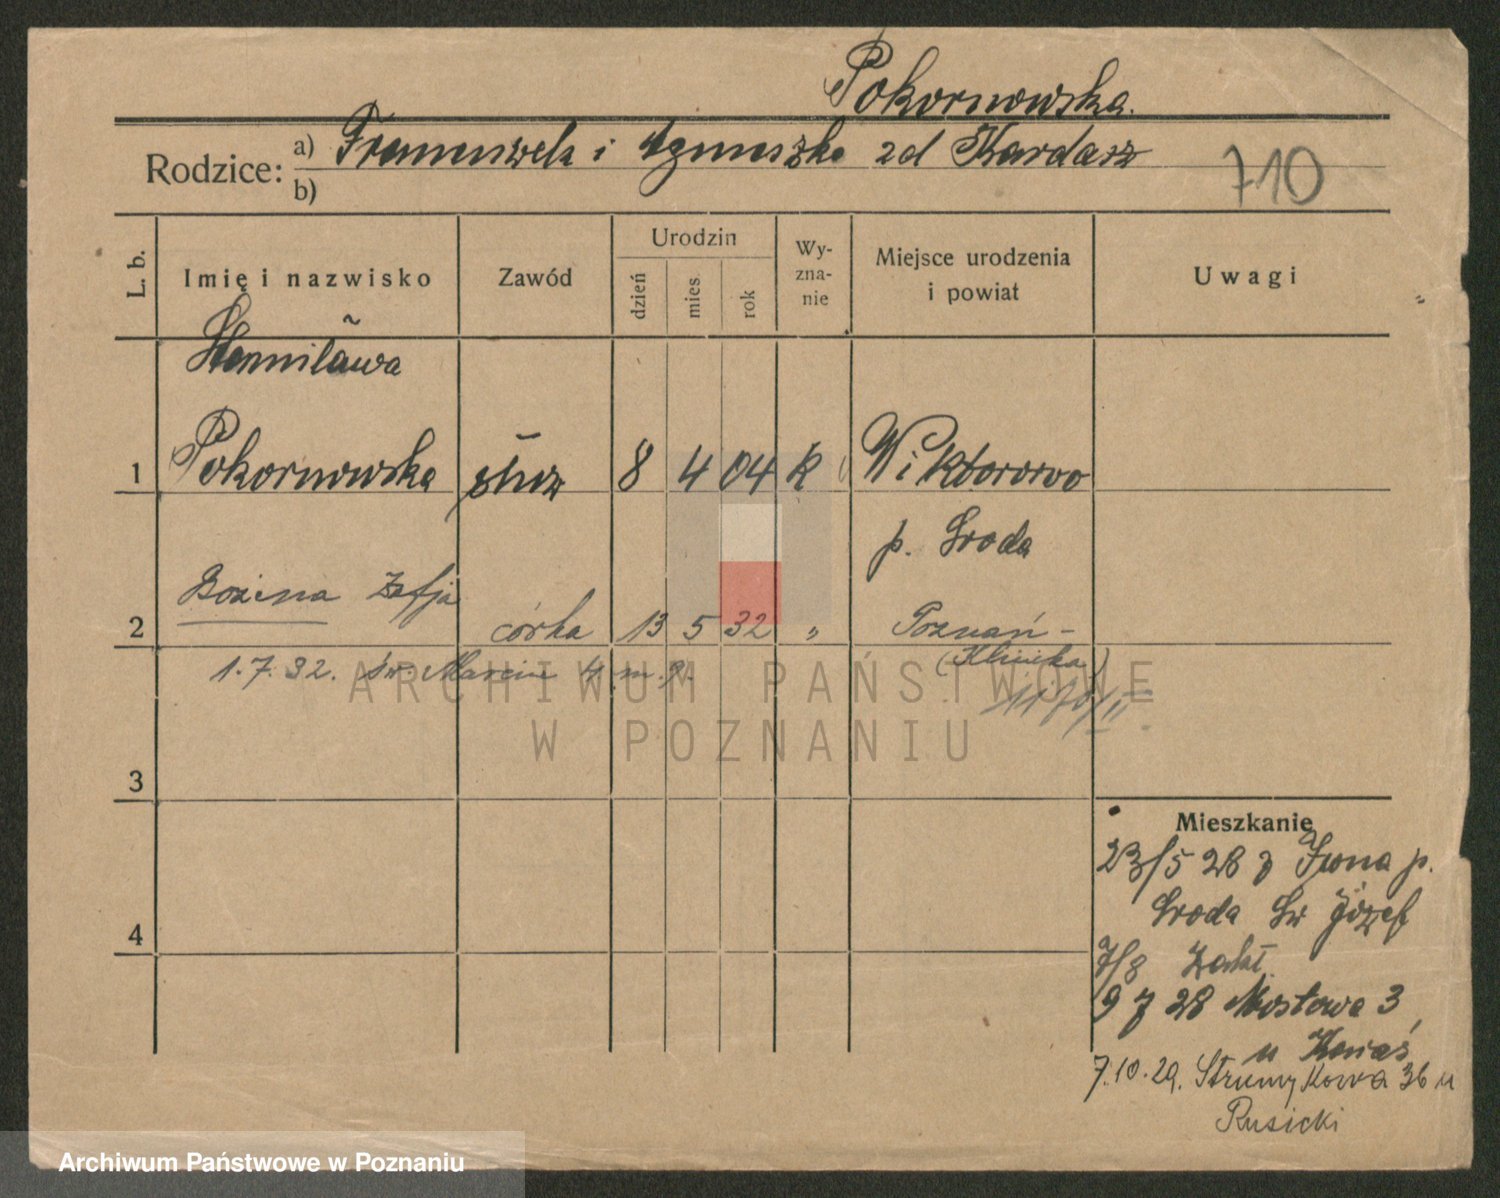 Pokornowska.
Rodzice: a) Franciszek i Agnieszka zd Kardasz
b)
710
L. b.
Imię i nazwisko
Zawód
Urodzin
dzień
mies.
rok
Wy-
zna-
nie
Miejsce urodzenia
i powiat
Uwagi
Stanisława
1 Pokornowska służ 8 4 04 k Wiktorowo
p. Środa
Bożena Zofja
2 córka 13 5 32 „ Poznań -
(Klinika)
1.7.32. św. Marcin 4 m. 9.
ARCHIWUM PAŃSTWOWE
W POZNANIU
3
Mieszkanie
23/5 28 z p.
Środa Św Józef
4
7/8 Zakł.
9 7 28 Mostowa 3
u
7.10.29. Strumykowa 36 u
Rusicki
Archiwum Państwowe w Poznaniu